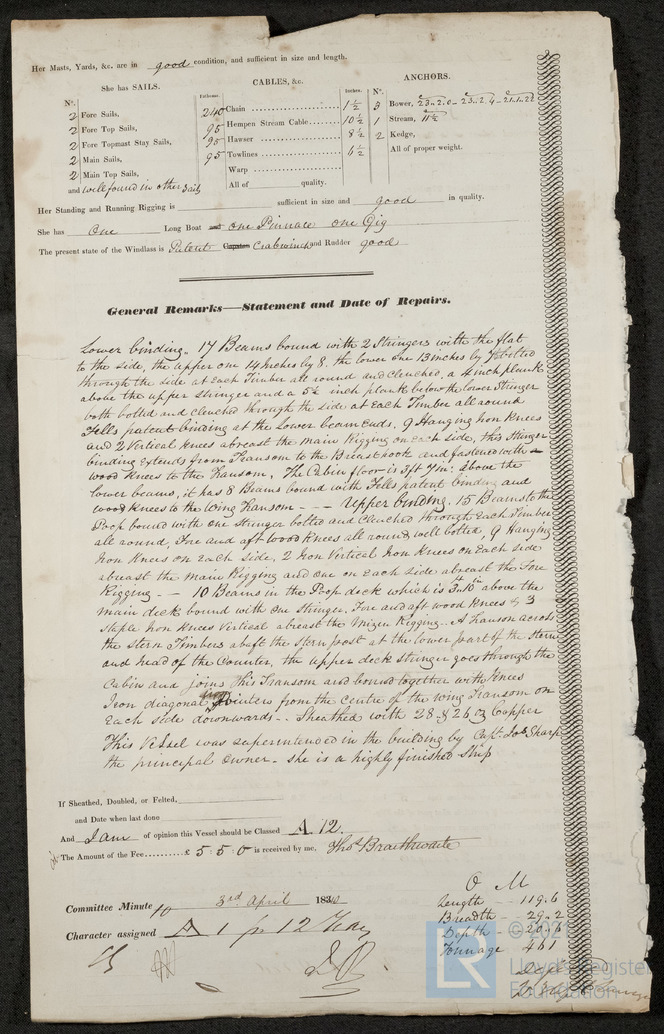 Her Masts, Yards, &c. are in good condition, and sufficient in size and length.
She has SAILS.
CABLES, &c.
ANCHORS.
Nº.
Fathoms.
Inches.
Nº.
2 Fore Sails,
240 Chain 1½
3 Bower, 23..2.0 — 23..2.4 — 21.1.22
2 Fore Top Sails,
95 Hempen Stream Cable 10½
1 Stream, 11½
2 Fore Topmast Stay Sails,
95 Hawser 8½
2 Kedge,
2 Main Sails,
95 Towlines 6½
All of proper weight.
2 Main Top Sails,
Warp
and well found in other Sails
All of quality.
Her Standing and Running Rigging is sufficient in size and good in quality.
She has One Long Boat and one Pinnace one Gig
The present state of the Windlass is Patent Capstan Crabwinch and Rudder good
General Remarks—Statement and Date of Repairs.
Lower binding. 17 Beams bound with 2 Stringers with the flat
to the side, the upper one 14 Inches by 8. the lower one 13 Inches by bolted
through the side at Each Timber all round and Clenched, a 4 inch plank
above the upper stringer and a 5½ inch plank below the lower Stringer
both bolted and clenched through the side at Each Timber all round
Fells patent binding at the Lower beam Ends. 9 Hanging Iron Knees
and 2 Vertical Knees abreast the main Rigging on Each side, this Stringer
binding Extends from Transom to the Breasthook and fastened with
wood Knees to the Transom. The Cabin floor is 3ft 7in: above the
lower beams, it has 8 Beams bound with Fells patent binding and
wood Knees to the Wing Transom - - - Upper binding. 15 Beams to the
Poop bound with one Stringer bolted and Clenched through Each Timber
all round, Fore and aft wood Knees all round well bolted, 9 Hanging
Iron Knees on Each side, 2 Iron Vertical Iron Knees on Each side
abreast the main Rigging and one on Each side abreast the Fore
Rigging - - 10 Beams in the Poop deck which is 3ft 10in above the
main deck bound with one Stringer. Fore and aft wood Knees & 3
Staple Iron Knees Vertical abreast the Mizen Rigging.. A Transom across
the Stern Timbers abaft the Stern post at the lower part of the Stern
and head of the Counter, the upper deck stringer goes through the
Cabin and joins this Transom and bound together with Knees
Iron diagonal Pointers from the Centre of the Wing Transom on
Each side downwards - . Sheathed with 28 & 26 oz Copper
This Vessel was superintended in the building by Capt. Jos Sharp
the principal owner - she is a highly finished Ship
If Sheathed, Doubled, or Felted,
and Date when last done
And I am of opinion this Vessel should be Classed A. 12.
The Amount of the Fee £ 5 : 5 : 0 is received by me, Thos Braithwaite
O M
Committee Minute 10 3rd April 1840
Length - - 119.6
Breadth - - 29.2
Character assigned A 1 for 12 Years
Depth - 20.6
Tonnage 461
LR
© 202
Lloyd's Register
Foundation